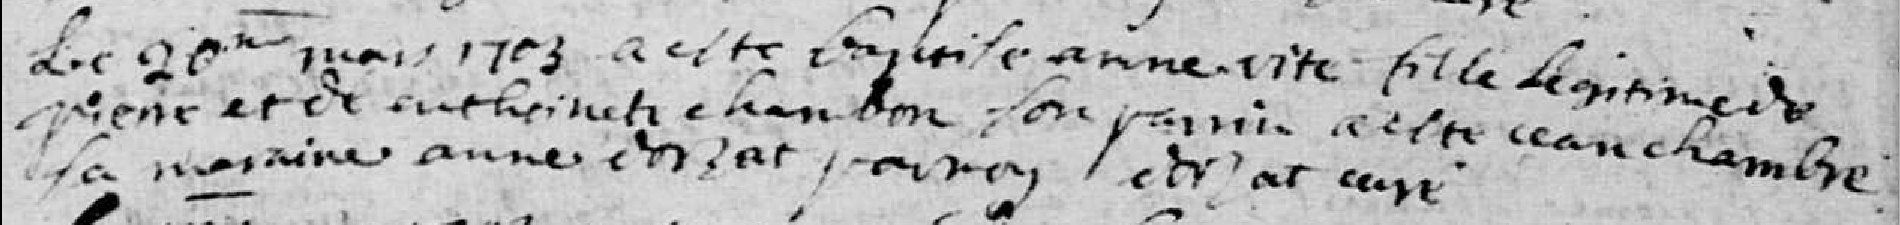 Le 20me mars 1703 a este baptise anne vite fille legitime de
pierre et de cathrinete chambon son parrin a este jean chambre
sa maraine anne dorzat par moy dorzat curé